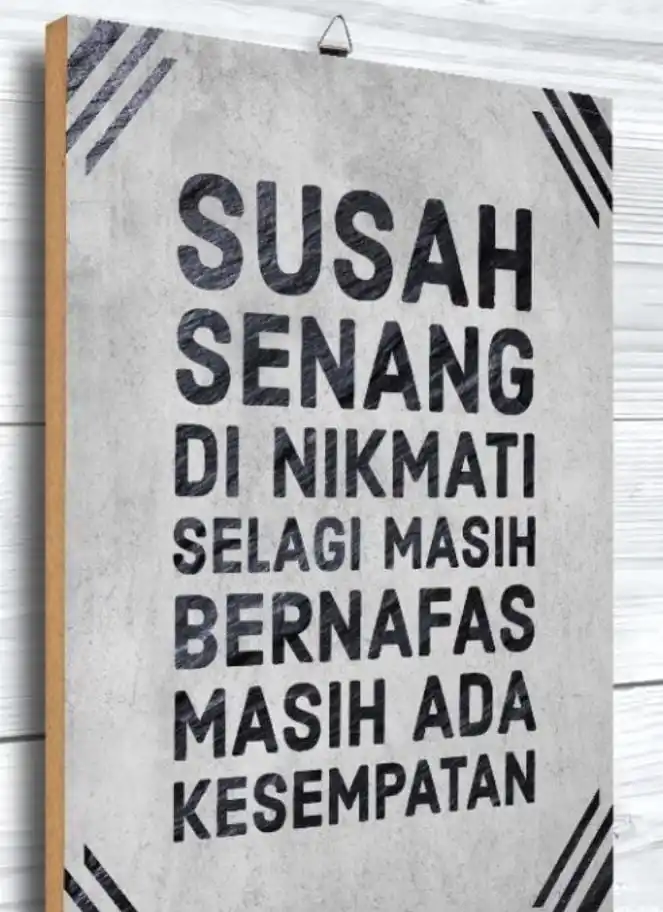 SUSAH
SENANG
DI NIKMATI
SELAGI MASIH
BERNAFAS
MASIH ADA
KESEMPATAN